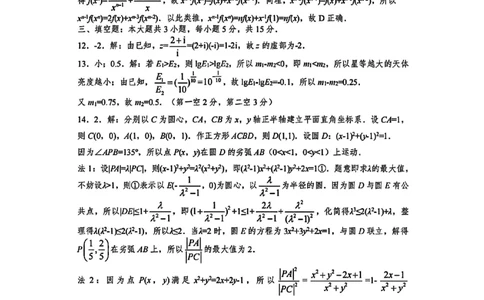 x^{n-1}f(x^n)=2f(x)+x^{n-3}f(x^{n-2}). 以此类推，x^{n-1}f(x^n)=nf(x)+x^{-1}f(1)=nf(x)，故 D 正确.
三、填空题：本大题共 3 小题，每小题 5 分，共 15 分.
12．-2．解：由已知，z=\frac{2+i}{i}=(2+i)(-i)=1-2i，故 z 的虚部为-2．
13．小；0.5．解：若 E₁>E₂，则 lgE₁>lgE₂，所以 m₁-m₂<0，即 m₁<m₂，所以星等越大的天体
亮度越小；由已知，\frac{E_1}{E_2}=(\frac{1}{10})^{\frac{1}{10}}=10^{-\frac{1}{10}}，故 lgE₁-lgE₂=-0.1，所以 m₁-m₂=0.25．
又 m₁=0.75，故 m₂=0.5．（第一空 2 分，第二空 3 分）
14．2．解：分别以 C 为圆心，CA，CB 为 x，y 轴正半轴建立平面直角坐标系．设 CA=1，
则 C(0，0)，A(1，0)，B(0，1)．作正方形 ACBD，则 D(1,1)．设圆 D：(x-1)²+(y-1)²=1．
因为∠APB=135°，所以点 P(x，y)在圆 D 的劣弧 AB（0<x<1，0<y<1）上运动．
法 1：设|PA|=λ|PC|，则(x-1)²+y²=λ²(x²+y²)，即(λ²-1)x²+(λ²-1)y²+2x=1①．题意即求λ的最大值，
不妨设λ>1，则①表示以 E(-\frac{1}{λ²-1}，0)为圆心，以\frac{λ}{λ²-1}为半径的圆．因为圆 D 与圆 E 有公
共点，所以|DE|≤1+\frac{λ}{λ²-1}，即(1+\frac{1}{λ²-1})²+1≤1+\frac{2λ}{λ²-1}+\frac{λ²}{(λ²-1)²}，化简得λ²≤2(λ²-1)+λ，整
理得λ(λ²-1)≤2(λ²-1)，所以λ≤2．当λ=2 时，圆 E 的方程为 3x²+3y²+2x=1，与圆 D 联立，解得
P(\frac{1}{5},\frac{2}{5})在劣弧 AB 上，所以\frac{|PA|}{|PC|}的最大值为 2．
法 2：因为点 P(x，y)满足 x²+y²=2x+2y-1，所以 \frac{|PA|²}{|PC|²}=\frac{x²+y²-2x+1}{x²+y²}=1-\frac{2x-1}{x²+y²}